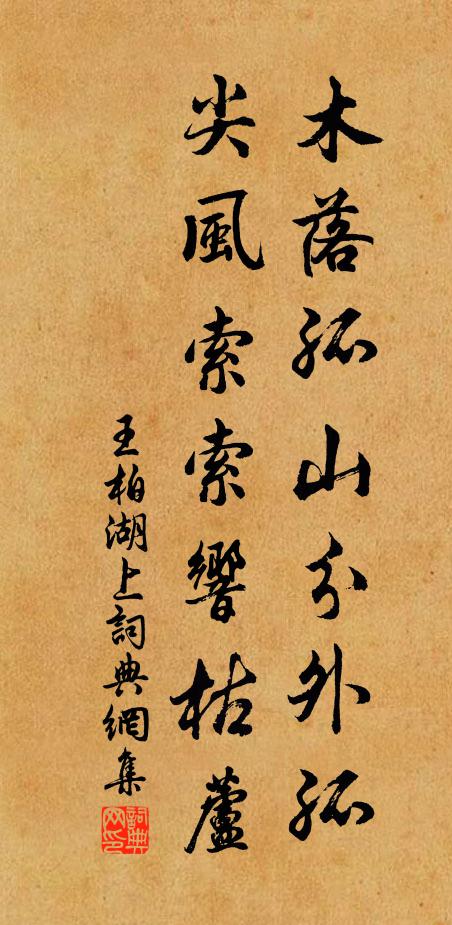 木落孤山分外孤
尖風索索響枯蘆
王柏湖上詞典網集
詞典網印